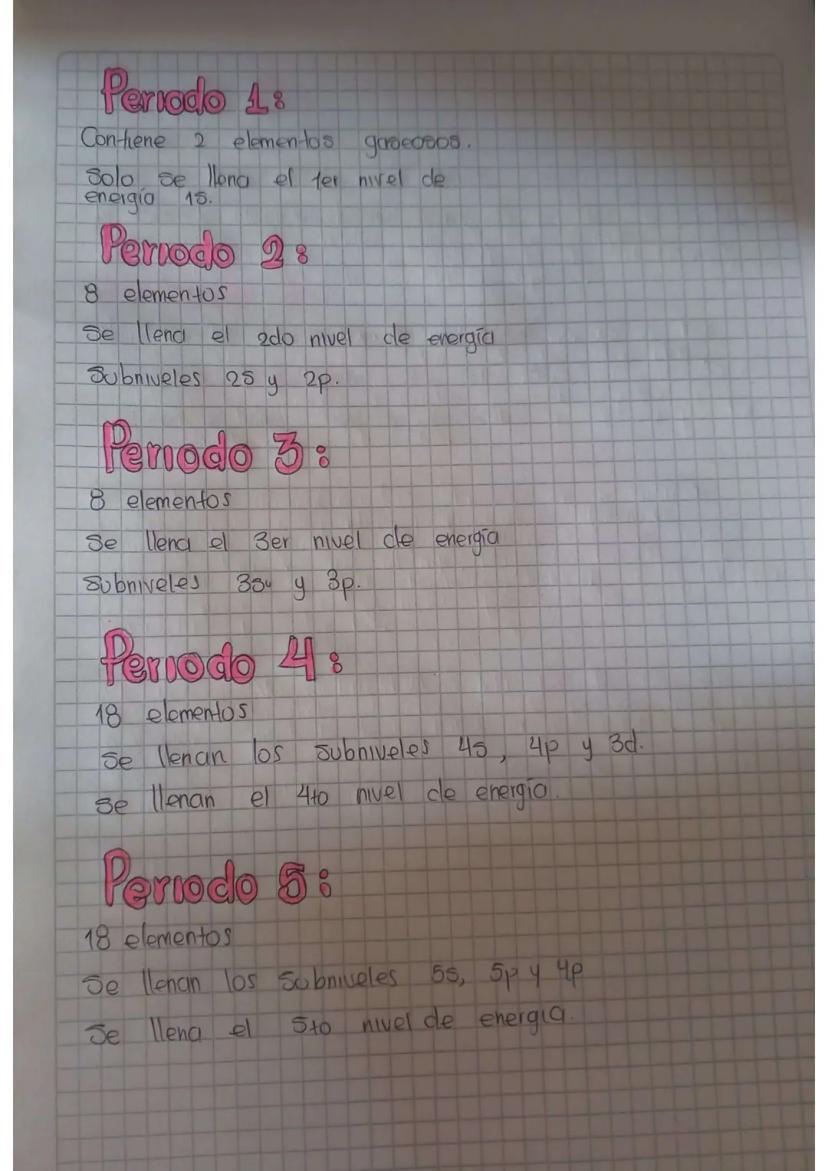 Periodo 1:
Contiene 2 elementos gaseosos.
Solo se llena el 1er nivel de
energía 1s.
Periodo 2:
8 elementos
Se llena el 2do nivel de energía
Subniveles 2s y 2p.
Periodo 3:
8 elementos
Se llena el 3er nivel de energía
Subniveles 3s y 3p.
Periodo 4:
18 elementos
Se llenan los subniveles 4s, 4p y 3d.
Se llenan el 4to nivel de energía.
Periodo 5:
18 elementos
Se llenan los subniveles 5s, 5p y 4p
Se llena el 5to nivel de energía.